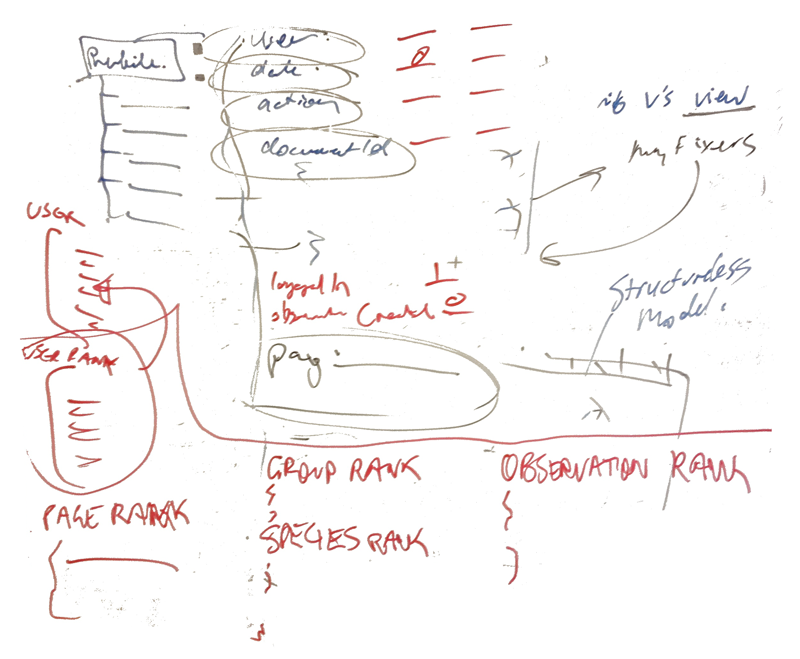 user.
Profile.
date.
action
documentId
ifs V's view
my Fixers
USER
logged In 1+
Created 0
Structureless
Model.
USER RANK
page:
GROUP RANK
OBSERVATION RANK
PAGE RANK
SPECIES RANK